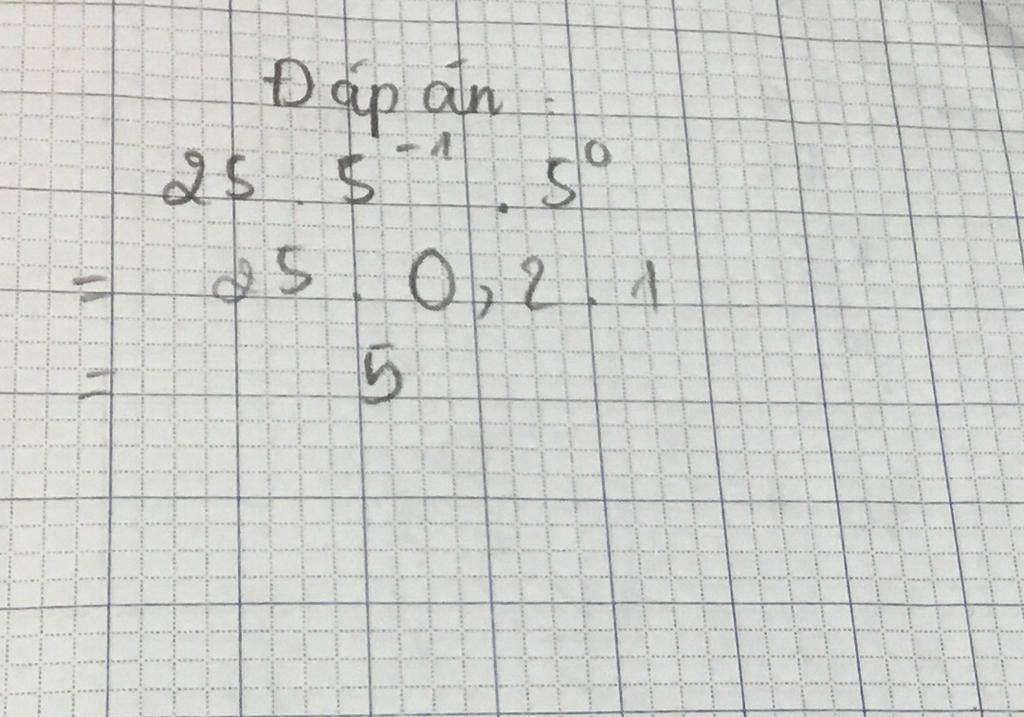 Đáp án :
25 . 5⁻¹ . 5⁰
= 25 . 0,2 . 1
= 5